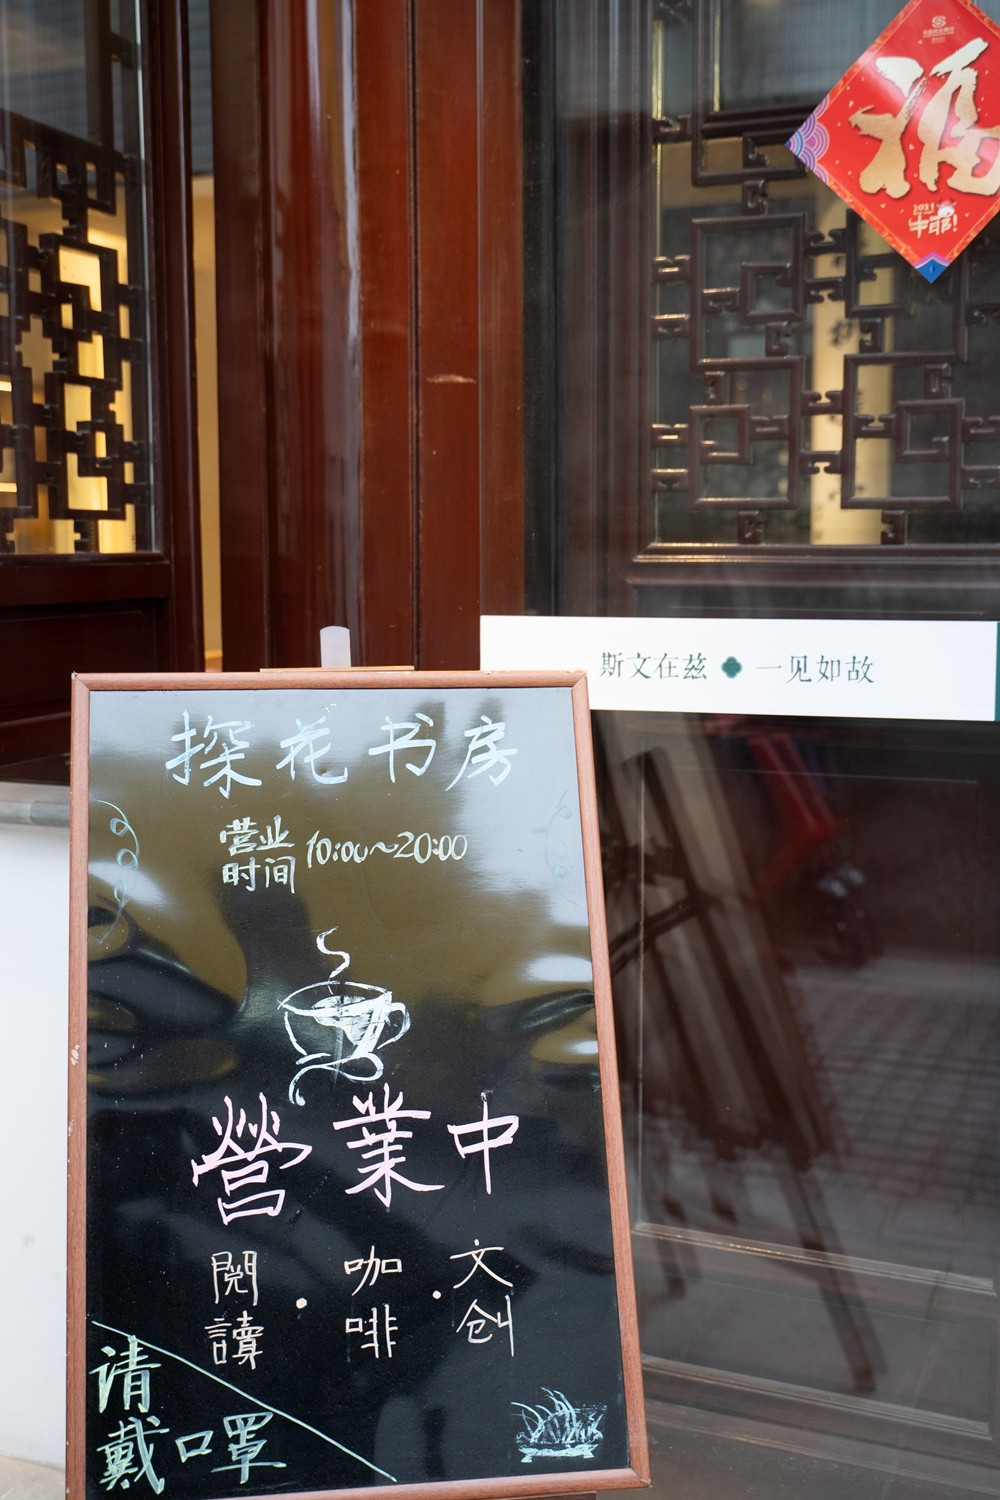 福
2021
牛耶!
斯文在兹 一见如故
探花书房
营业时间 10:00~20:00
營業中
閱讀·咖啡·文创
请
戴口罩